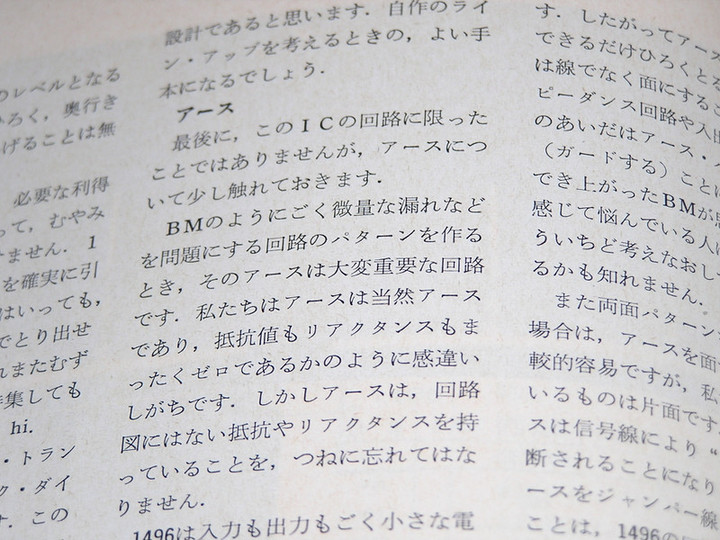 のレベルとなる
ろく，奥行き
げることは無
必要な利得
って，むやみ
ません．1
を確実に引
はいっても，
でとり出せ
れまたむず
集しても
hi.
・トラン
ク・ダイ
す．この
設計であると思います．自作のライ
ン・アップを考えるときの，よい手
本になるでしょう．
アース
最後に，このＩＣの回路に限った
ことではありませんが，アースにつ
いて少し触れておきます．
BMのようにごく微量な漏れなど
を問題にする回路のパターンを作る
とき，そのアースは大変重要な回路
です．私たちはアースは当然アース
であり，抵抗値もリアクタンスもま
ったくゼロであるかのように感違い
しがちです．しかしアースは，回路
図にはない抵抗やリアクタンスを持
っていることを，つねに忘れてはな
りません．
1496は入力も出力もごく小さな電
す．したがってアース
できるだけひろくとる
は線でなく面にする
ピーダンス回路や入出
のあいだはアース・
（ガードする）ことに
でき上がったBMが
感じて悩んでいる人は
ういちど考えなおして
るかも知れません．
また両面パターン
場合は，アースを面
較的容易ですが，私
いるものは片面です
スは信号線により“
断されることになり
ースをジャンパー線
ことは，1496の